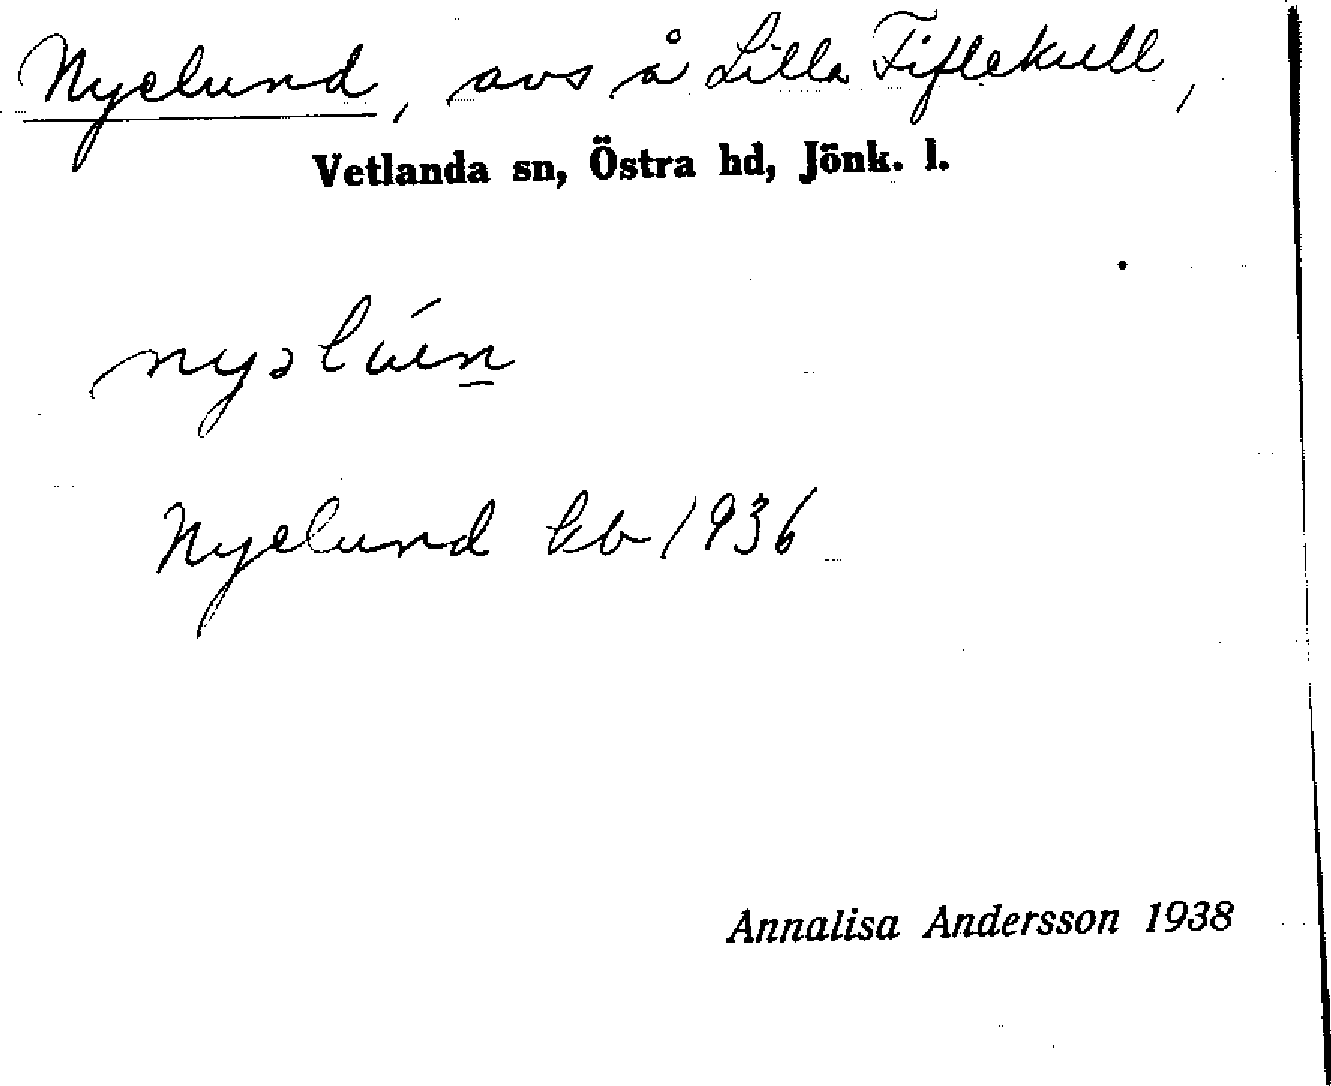 Nyelund, avs å Lilla Fiflekull,
Vetlanda sn, Östra hd, Jönk. l.
Nyelund kb 1936
Annalisa Andersson 1938